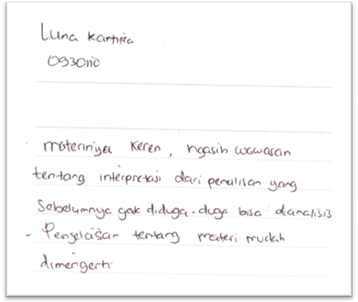 Luna Kartika
0930110
- materinya keren, ngasih wawasan
tentang interpretasi dari penulisan yang
sebelumnya gak diduga-duga bisa dianalisis
- Penjelasan tentang materi mudah
dimengerti